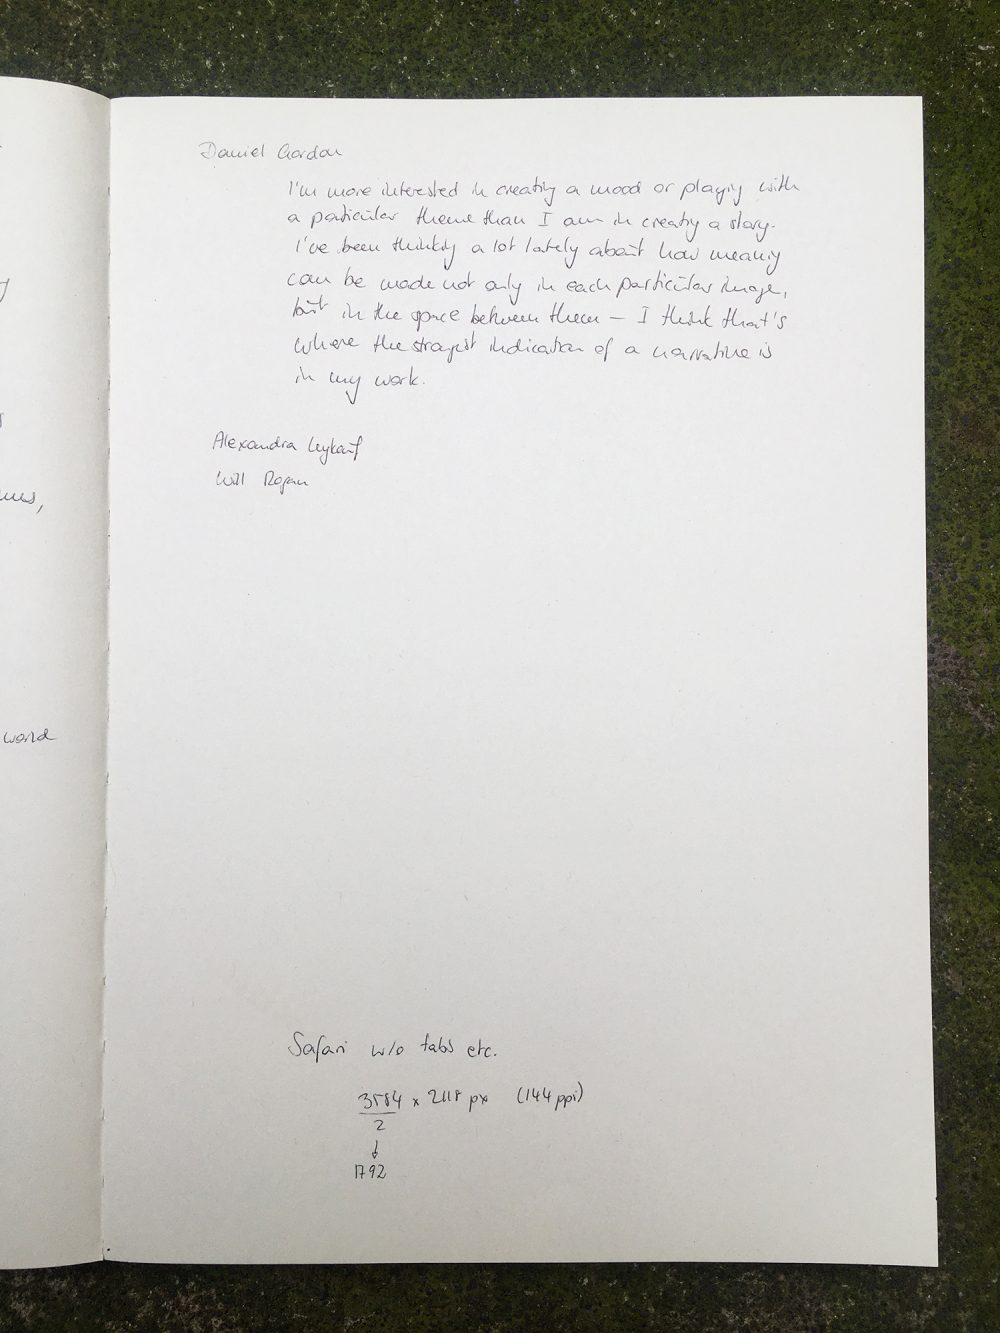 Daniel Gordon
I'm more interested in creating a mood or playing with
a particular theme than I am in creating a story.
I've been thinking a lot lately about how meaning
can be made not only in each particular image,
but in the space between them — I think that's
where the strongest indication of a narrative is
in my work.
Alexandra Leykauf
Will Rogan
world
Safari w/o tabs etc.
3584 x 2118 px (144 ppi)
2
↓
1792